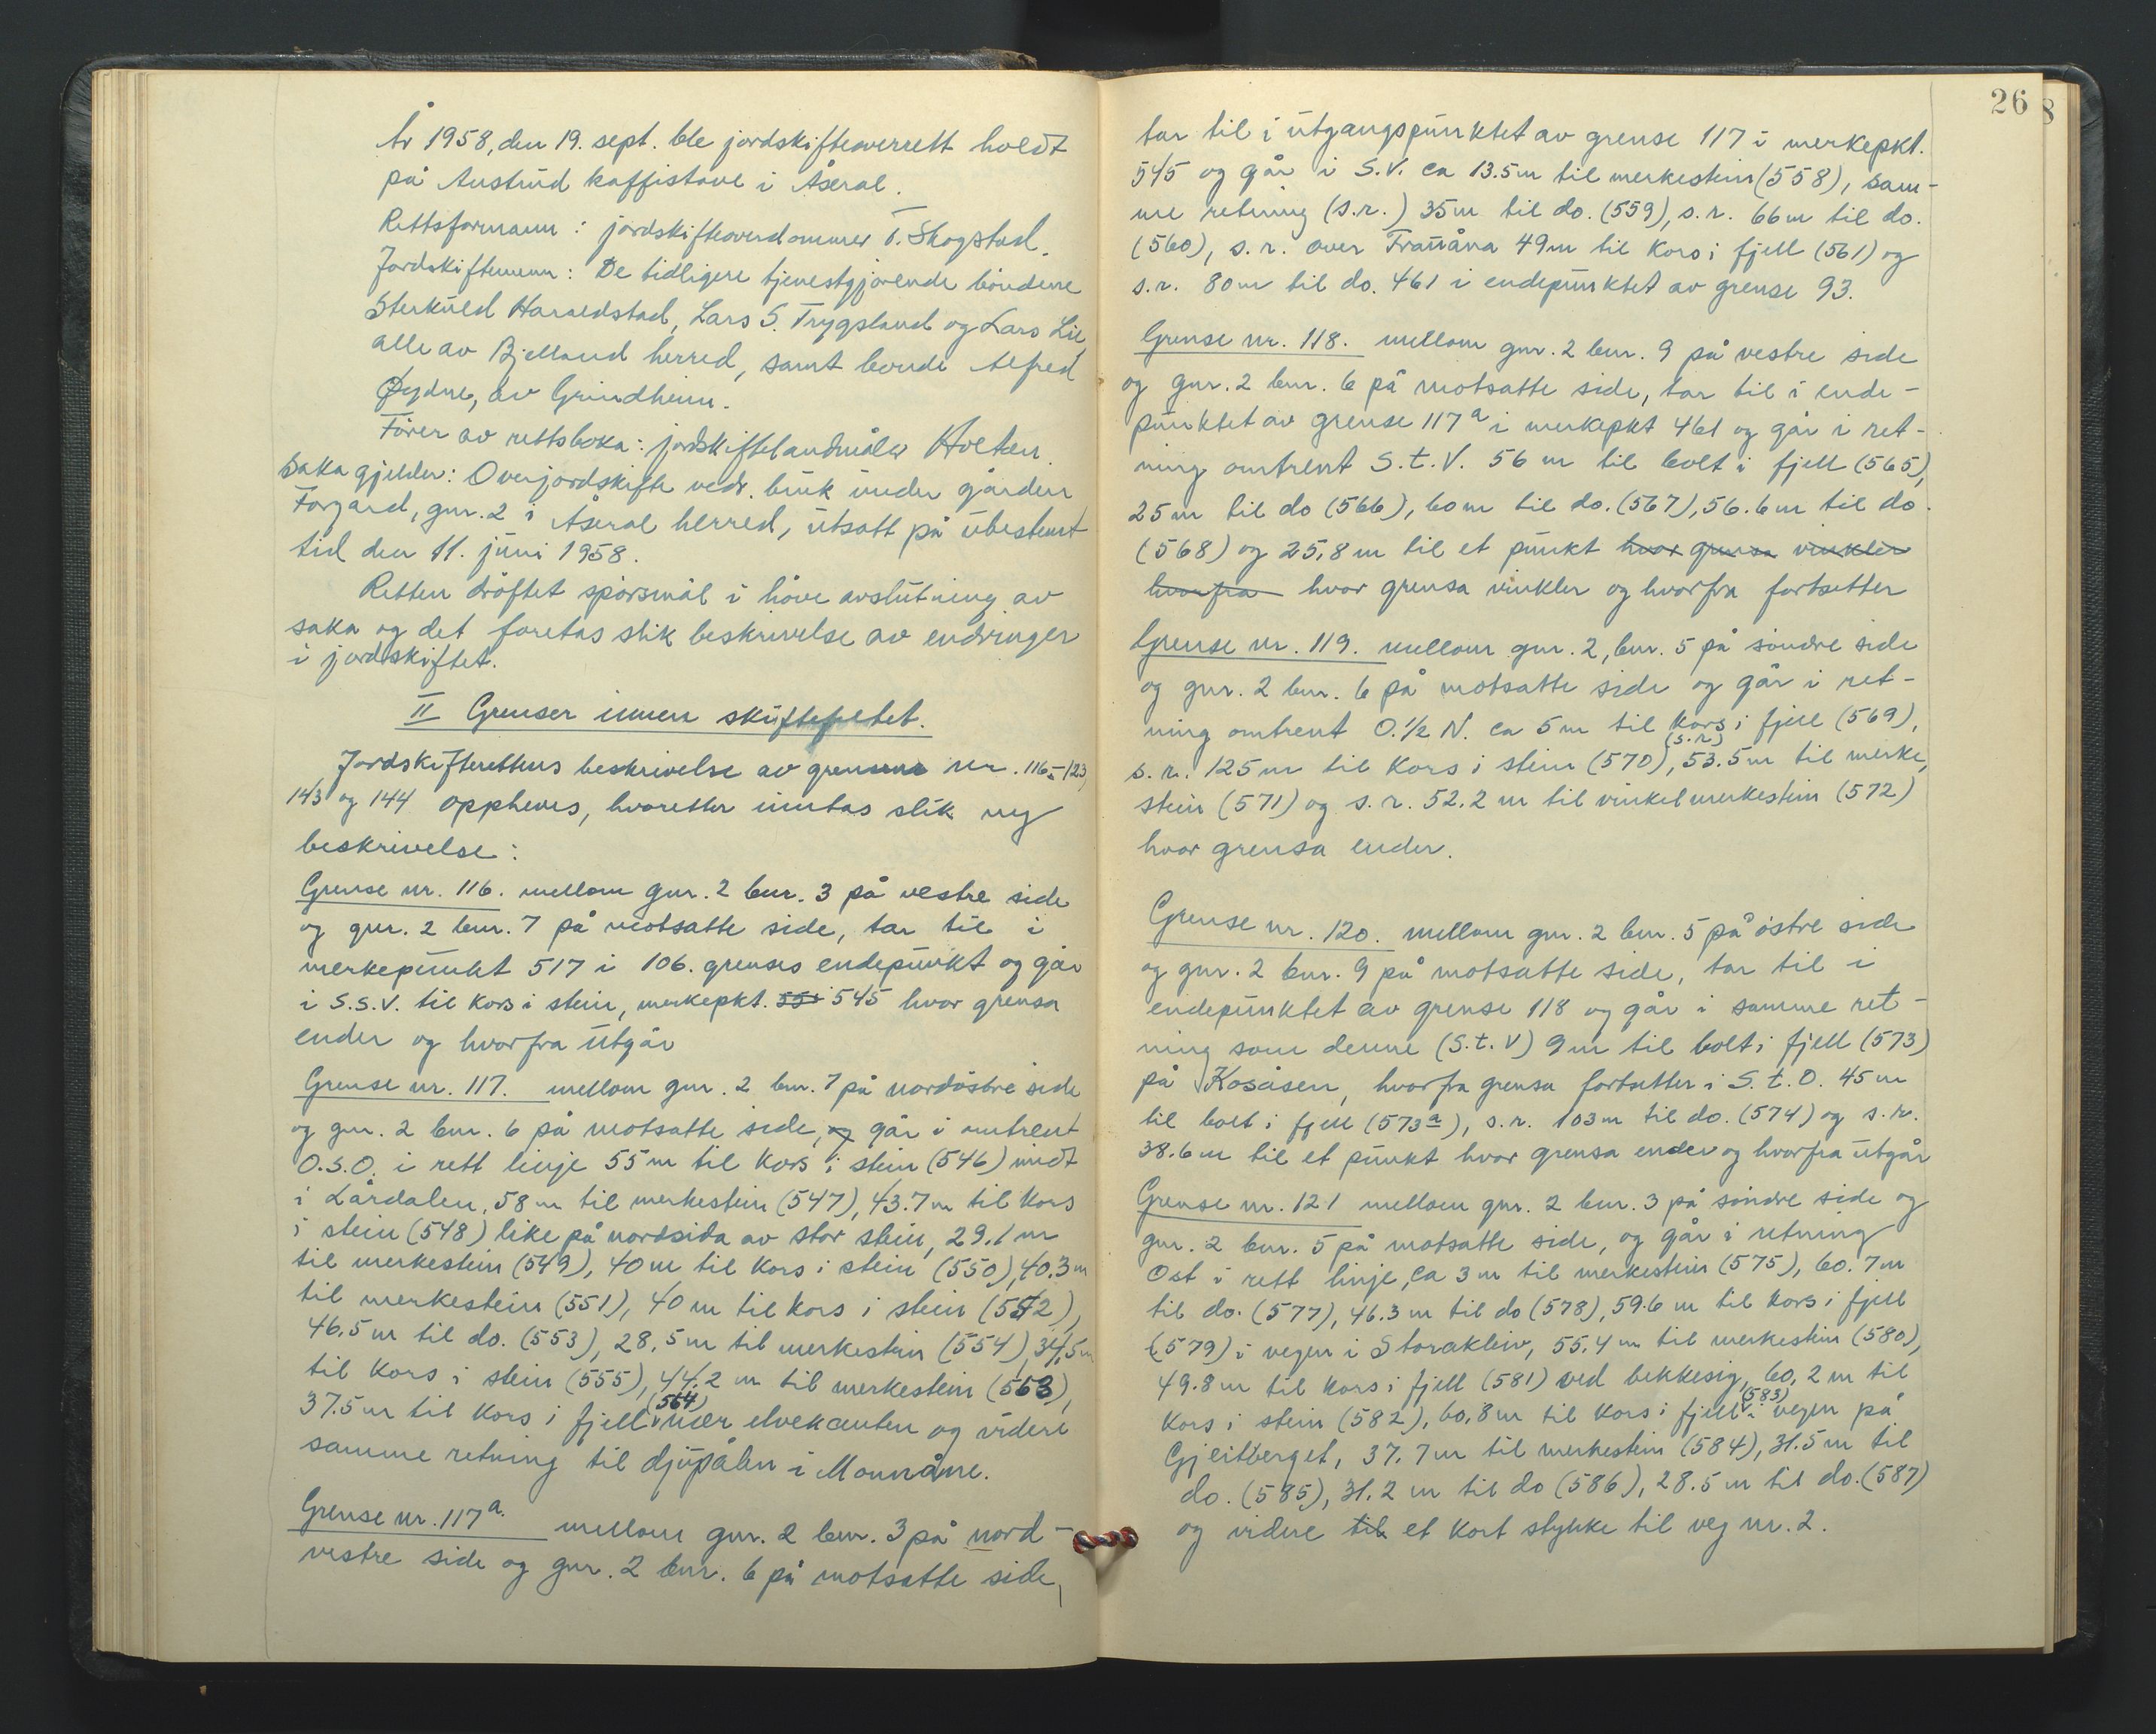 År 1958, den 19. sept. ble jordskifteoverrett holdt
på Austrud kaffistove i Åseral.
Rettsformann: jordskifteoverdommer T. Skogstad.
Jordskiftemenn: De tidligere tjenestgjørende bøndene
Sterkuld Haraldstad, Lars S. Trygsland og Lars Lie
alle av Bjelland herred, samt bonde Alfred
Øydne, av Grindheim.
Fører av rettsboka: jordskiftelandmåler Holten.
Saka gjelder: Overjordskifte vedr. bruk under gården
Forgard, gnr. 2 i Åseral herred, utsatt på ubestemt
tid den 11. juni 1958.
Retten drøftet spørsmål i høve avslutning av
saka og det foretas slik beskrivelse av endringer
i jordskiftet.
II Grenser innen skiftefeltet.
Jordskifterettens beskrivelse av grensene nr. 116-123,
143 og 144 oppheves, hvoretter inntas slik ny
beskrivelse:
Grense nr. 116. mellom gnr. 2 bnr. 3 på vestre side
og gnr. 2 bnr. 7 på motsatte side, tar til i
merkepunkt 517 i 106. grenses endepunkt og går
i S.S.V. til kors i stein, merkepkt. 551 545 hvor grensa
ender og hvorfra utgår
Grense nr. 117. mellom gnr. 2 bnr. 7 på nordøstre side
og gnr. 2 bnr. 6 på motsatte side, og går i omtrent
O.S.O. i rett linje 55 m til kors i stein (546) midt
i Lårdalen, 58 m til merkestein (547), 43.7 m til kors
i stein (548) like på nordsida av stor stein, 29.1 m
til merkestein (549), 40 m til kors i stein (550), 40.3 m
til merkestein (551), 40 m til kors i stein (552),
46.5 m til do. (553), 28.5 m til merkestein (554), 34,5 m
til kors i stein (555), 44.2 m til merkestein (563),
37.5 m til kors i fjell (564) nær elvekanten og videre
samme retning til djupålen i Monnåne.
Grense nr. 117a. mellom gnr. 2 bnr. 3 på nord-
vestre side og gnr. 2 bnr. 6 på motsatte side,
26
8
tar til i utgangspunktet av grense 117 i merkepkt.
545 og går i S.V. ca 13.5 m til merkestein (558), sam-
me retning (s.r.) 35 m til do. (559), s.r. 66 m til do.
(560), s.r. over Tranåna 49 m til kors i fjell (561) og
s.r. 80 m til do. 461 i endepunktet av grense 93.
Grense nr. 118. mellom gnr. 2 bnr. 9 på vestre side
og gnr. 2 bnr. 6 på motsatte side, tar til i ende-
punktet av grense 117a i merkepkt 461 og går i ret-
ning omtrent S.t.V. 56 m til bolt i fjell (565),
25 m til do (566), 60 m til do. (567), 56.6 m til do.
(568) og 25,8 m til et punkt hvor grensa vinkler
hvorfra hvor grensa vinkler og hvorfra fortsetter
Grense nr. 119. mellom gnr. 2, bnr. 5 på søndre side
og gnr. 2 bnr. 6 på motsatte side og går i ret-
ning omtrent O.½ N. ca 5 m til kors i fjell (569),
s.r. 125 m til kors i stein (570), (s.r) 53.5 m til merke,
stein (571) og s.r. 52.2 m til vinkelmerkestein (572)
hvor grensa ender.
Grense nr. 120. mellom gnr. 2 bnr. 5 på østre side
og gnr. 2 bnr. 9 på motsatte side, tar til i
endepunktet av grense 118 og går i samme ret-
ning som denne (S.t.V) 9 m til bolt i fjell (573)
på Kosåsen, hvorfra grensa fortsetter i S.t.O. 45 m
til bolt i fjell (573a), s.r. 103 m til do. (574) og s.r.
38.6 m til et punkt hvor grensa ender og hvorfra utgår
Grense nr. 121 mellom gnr. 2 bnr. 3 på søndre side og
gnr. 2 bnr. 5 på motsatte side, og går i retning
Ost i rett linje, ca 3 m til merkestein (575), 60.7 m
til do. (577), 46.3 m til do (578), 59.6 m til kors i fjell
(579) i vegen i Storakleiv, 55.4 m til merkestein (580),
49.8 m til kors i fjell (581) ved bekkesig, 60,2 m til
kors i stein (582), 60,8 m til kors i fjell (583) i vegen på
Gjeitberget, 37.7 m til merkestein (584), 31.5 m til
do. (585), 31.2 m til do (586), 28.5 m til do. (587)
og videre til et kort stykke til veg nr. 2.